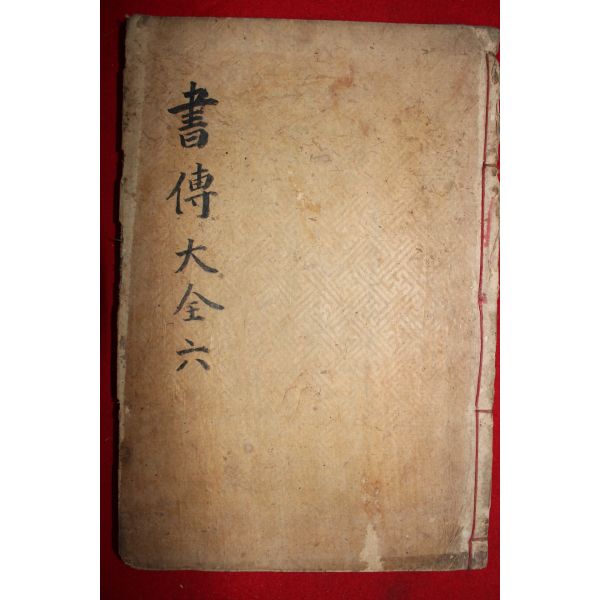 書傳大全六